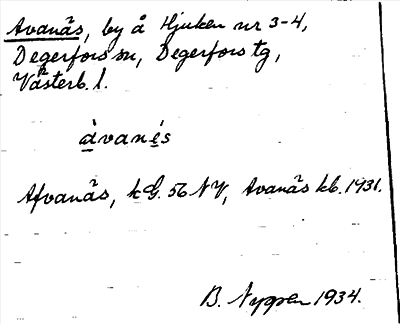 Avanäs, by å Hjuken nr 3-4,
Degerfors sn, Degerfors tg,
Västerb. l.
àvanés
Afvanäs, kG. 56 NV, Avanäs kb. 1931.
B. Nygren 1934.